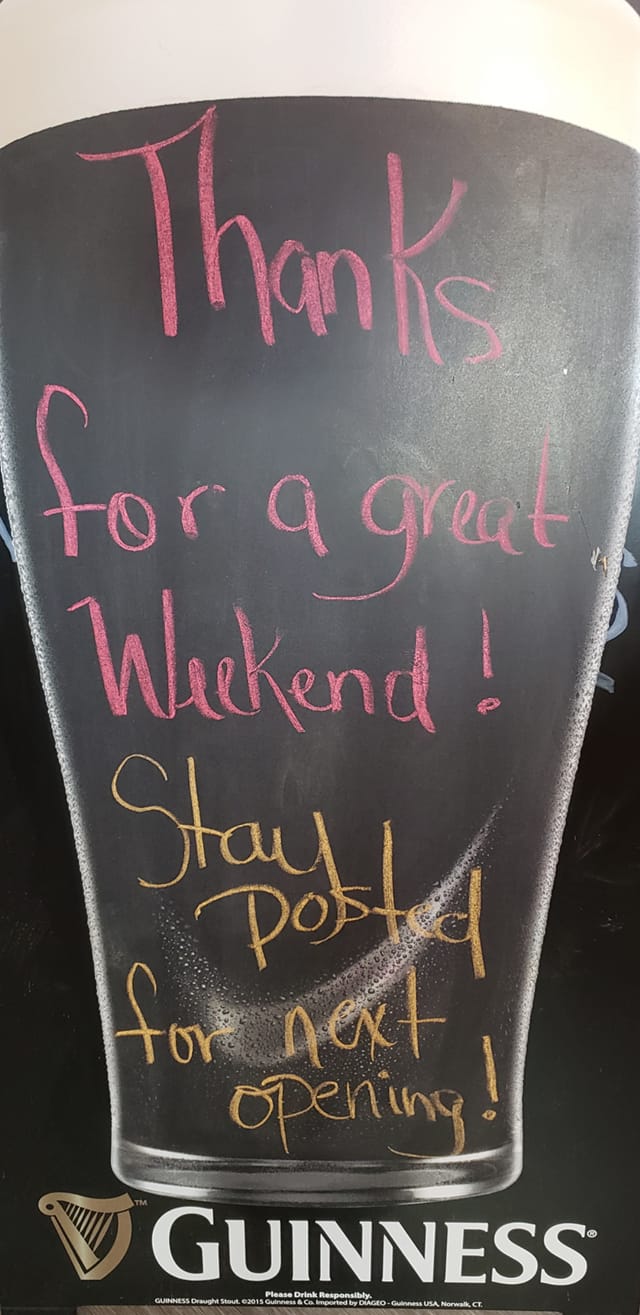 Thanks
for a great
Weekend!
Stay
posted
for next
opening!
™
GUINNESS®
Please Drink Responsibly.
GUINNESS Draught Stout. ©2015 Guinness & Co. Imported by DIAGEO - Guinness USA, Norwalk, CT.